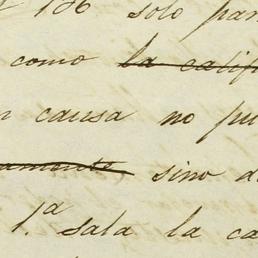 136 solo par
como la calif
causa no pu
amente sino d
1.ª sala la ca